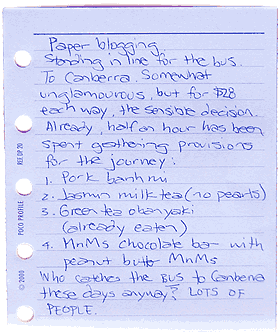 Paper blogging.
Standing in line for the bus.
To Canberra. Somewhat
unglamourous, but for $28
each way, the sensible decision.
Already, half an hour has been
spent gathering provisions
for the journey:
1. Pork banh mi
2. Jasmin milk tea (no pearls)
3. Green tea obanyaki
(already eaten)
4. MnMs chocolate bar with
peanut butter MnMs
Who catches the BUS to Canberra
these days anyway? LOTS OF
PEOPLE.
REEDP20
POCO PROFILE
© 2000